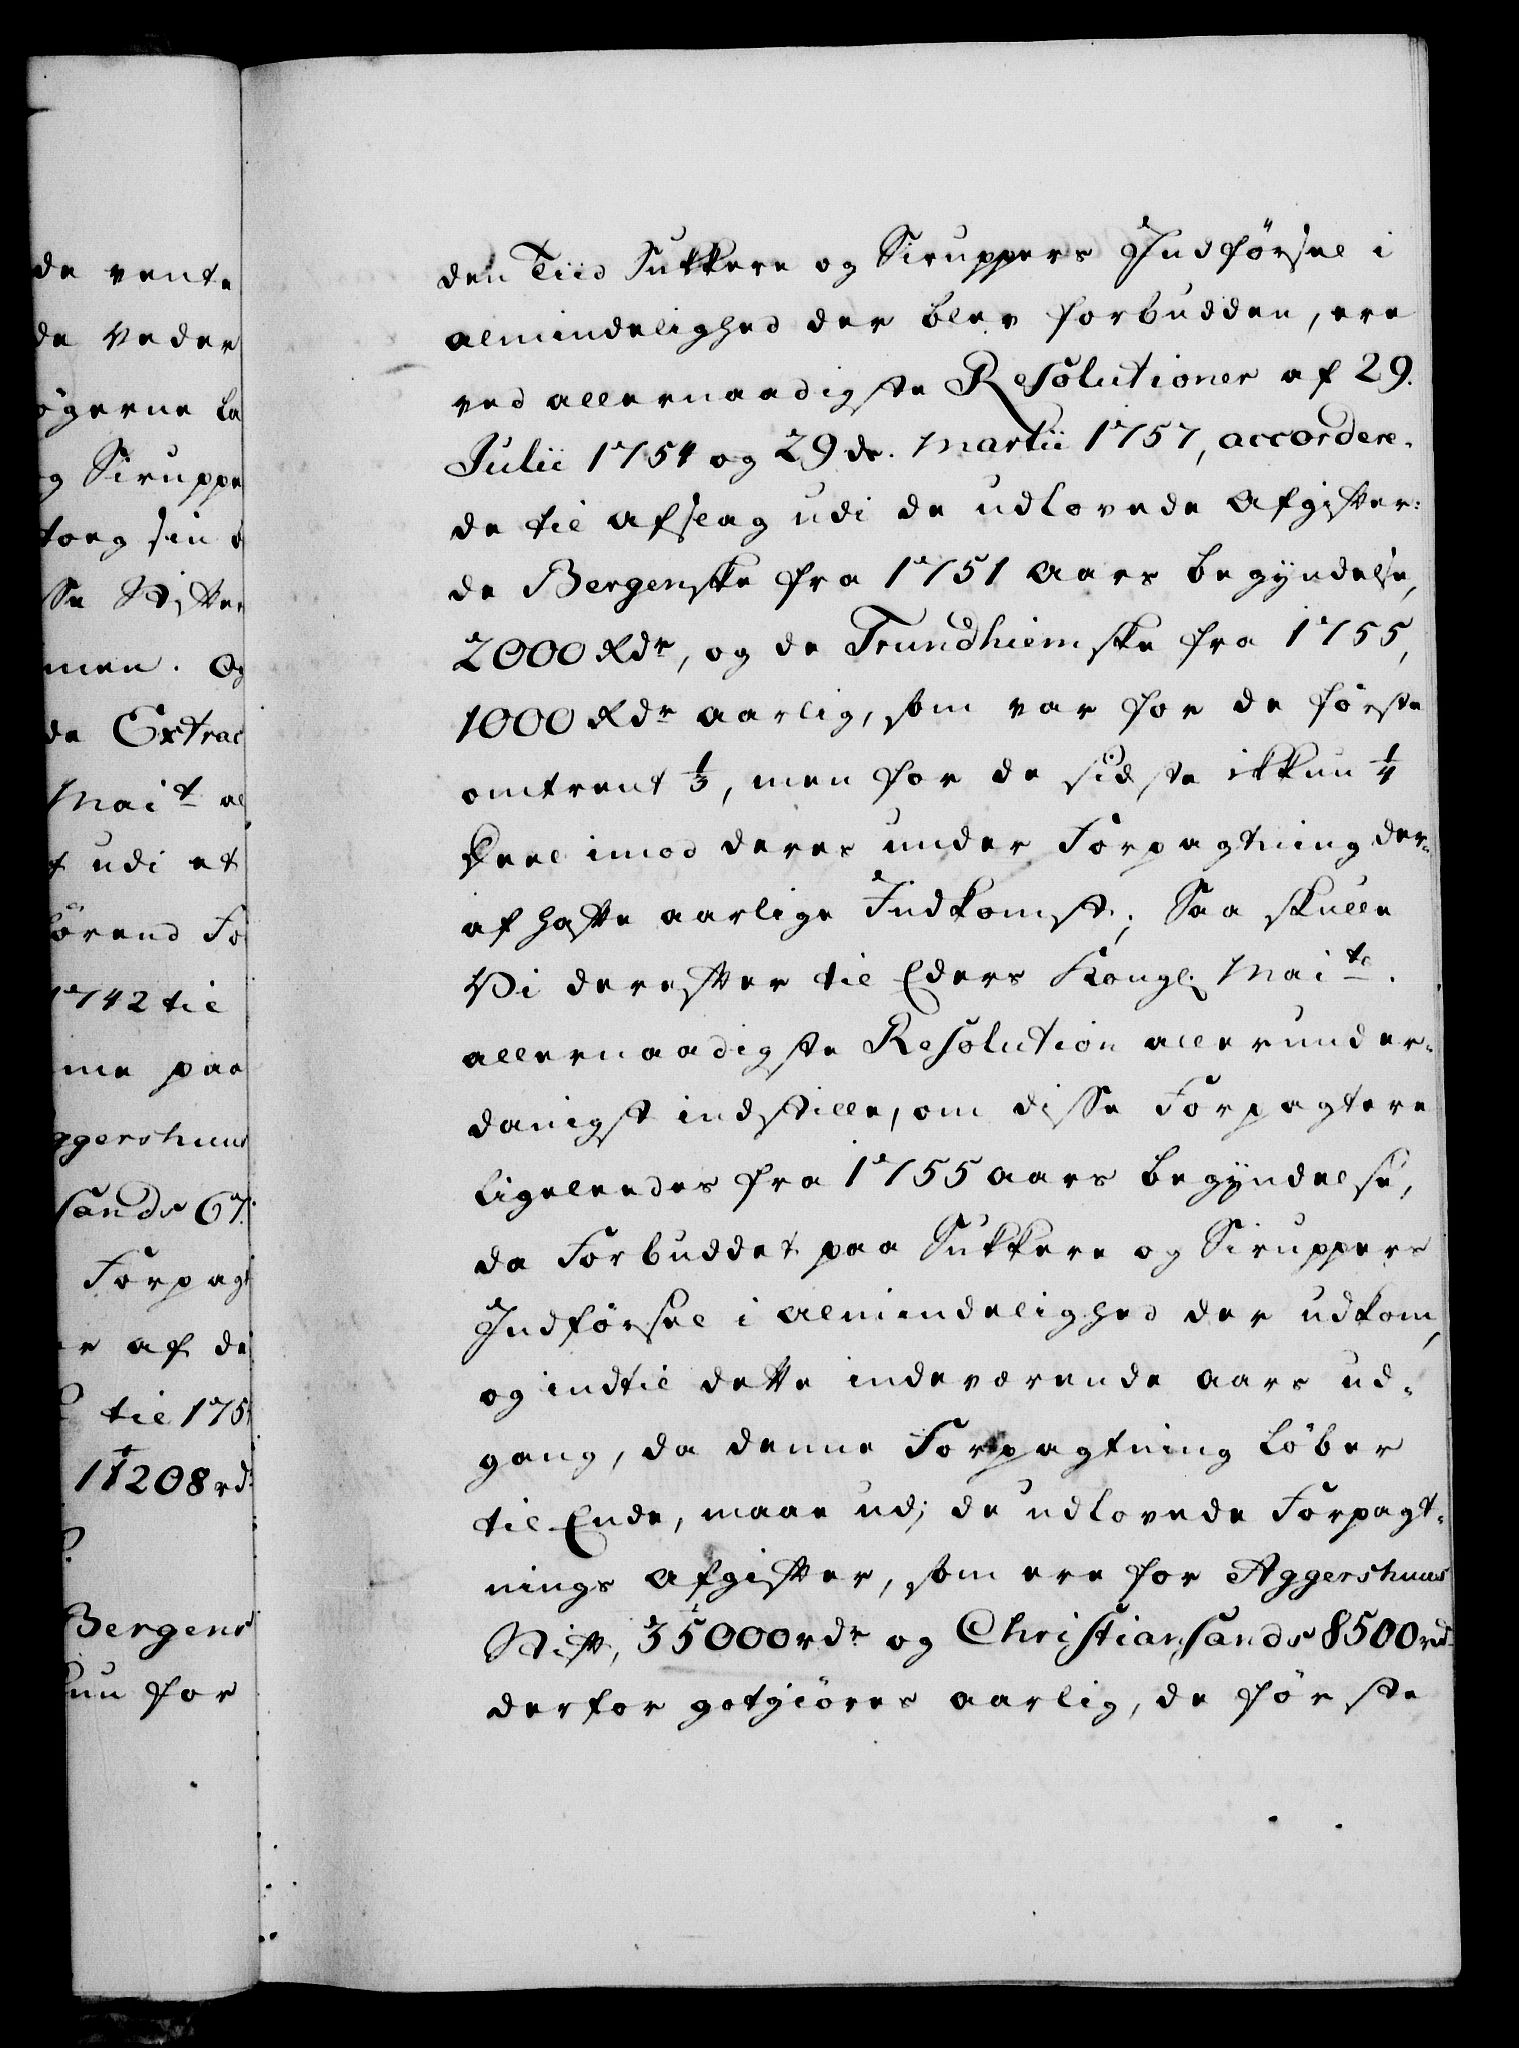 de vente
de Veder
øgerne la
g Siruppe
torg sin
sse Stifter
men. Og
de Extrac
Mait al
t udi et
ørend Fo
1742 til
me paa
ggershuus
sands 67.
Forpagt
er af de
til 175
11208 rd
Bergens
kun for
den Tiid Sukkere og Siruppers Indførsel i
almindelighed der blev forbudden, ere
ved allernaadigste Resolutioner af 29.
Julii 1754 og 29de. Martii 1757, accordere-
de til afslag udi de udlovede Afgifter:
de Bergenske fra 1751 Aars begyndelse,
2000 Rdr, og de Trundhiemske fra 1755,
1000 Rdr aarlig, som var for de første
omtrent 1/3, men for de sidste ikkun 1/4
Deel imod deres under Forpagtning der-
af hafte aarlige Indkomst; Saa skulle
Vi derefter til Eders Kongl. Maits.
allernaadigste Resolution allerunder-
danigst indstille, om disse Forpagtere
ligeleedes fra 1755 aars begyndelse,
da Forbuddet paa Sukkere og Siruppers
Indførsel i almindelighed der udkom,
og indtil dette indeværende aars ud-
gang, da denne Forpagtning løber
til Ende, maae udi de udlovede Forpagt-
nings afgifter, som ere for Aggershuus
Stift, 35000 rdr og Christiansands 8500 rd
derfor gotgiøres aarlig, de første